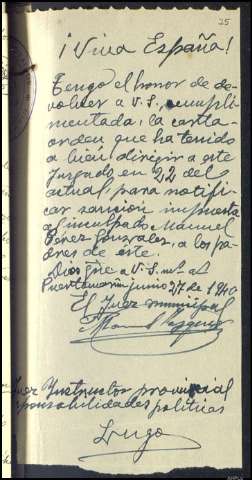 25
¡Viva España!
Tengo el honor de de-
volver a V.S., cumpli-
mentada, la carta-
orden que ha tenido
a bien dirigir a este
Juzgado en 22 del
actual, para notifi-
car sanción impuesta
al inculpado Manuel
Pérez González, a los pa-
dres de este.
Dios gue a V.S. ms. as.
Puertomarín junio 27 de 1940
El Juez municipal
Juez Instructor provincial
responsabilidades políticas
Lugo